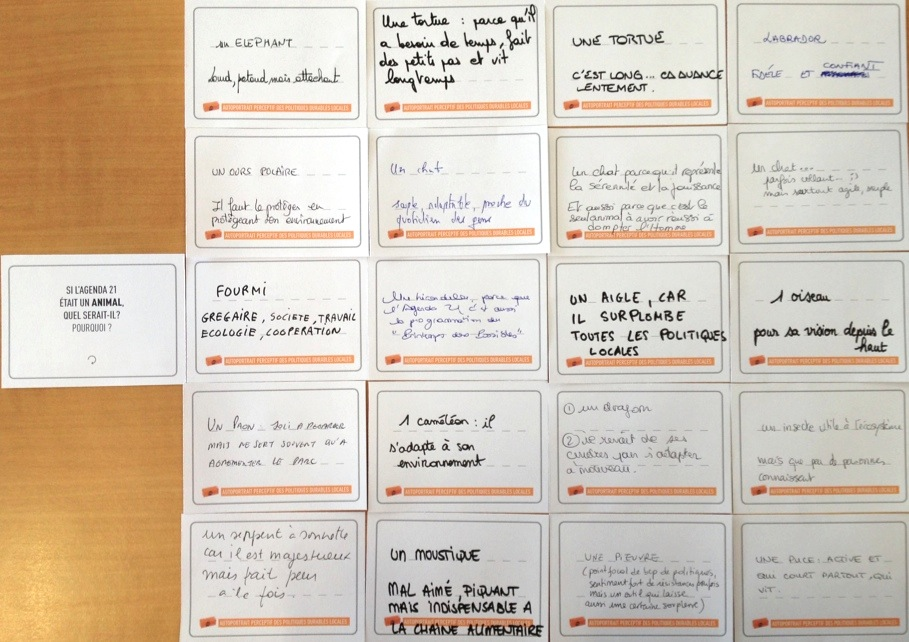 un ELEPHANT
lourd, pataud, mais attachant
AUTOPORTRAIT PERCEPTIF DES POLITIQUES DURABLES LOCALES
Une tortue : parce qu'il
a besoin de temps, fait
des petits pas et vit
longtemps
AUTOPORTRAIT PERCEPTIF DES POLITIQUES DURABLES LOCALES
UNE TORTUE
C'EST LONG... CA AVANCE
LENTEMENT.
AUTOPORTRAIT PERCEPTIF DES POLITIQUES DURABLES LOCALES
LABRADOR
FIDÈLE ET CONFIANT
AUTOPORTRAIT PERCEPTIF DES POLITIQUES DURABLES LOCALES
UN OURS POLAIRE
Il faut le protéger en
protégeant son environnement
AUTOPORTRAIT PERCEPTIF DES POLITIQUES DURABLES LOCALES
Un chat
souple, adaptable, proche du
quotidien des gens
AUTOPORTRAIT PERCEPTIF DES POLITIQUES DURABLES LOCALES
Un chat parce qu'il représente
la sérénité et la jouissance
Et aussi parce que c'est le
seul animal à avoir réussi à
dompter l'Homme
AUTOPORTRAIT PERCEPTIF DES POLITIQUES DURABLES LOCALES
Un chat...
parfois collant... :)
mais surtout agile, souple
AUTOPORTRAIT PERCEPTIF DES POLITIQUES DURABLES LOCALES
SI L'AGENDA 21
ÉTAIT UN ANIMAL,
QUEL SERAIT-IL?
POURQUOI ?
FOURMI
GREGAIRE, SOCIETE, TRAVAIL
ECOLOGIE, COOPERATION
AUTOPORTRAIT PERCEPTIF DES POLITIQUES DURABLES LOCALES
Une hirondelle, parce que
l'Agenda 21, c'est aussi
la programmation du
"Printemps des Possibles"
AUTOPORTRAIT PERCEPTIF DES POLITIQUES DURABLES LOCALES
UN AIGLE, CAR
IL SURPLOMBE
TOUTES LES POLITIQUES
LOCALES
AUTOPORTRAIT PERCEPTIF DES POLITIQUES DURABLES LOCALES
1 oiseau
pour sa vision depuis le
haut
AUTOPORTRAIT PERCEPTIF DES POLITIQUES DURABLES LOCALES
UN PAON JOLI A REGARDER
MAIS NE SERT SOUVENT QU'A
AGREMENTER LE PARC
AUTOPORTRAIT PERCEPTIF DES POLITIQUES DURABLES LOCALES
1 caméléon : il
s'adapte à son
environnement
AUTOPORTRAIT PERCEPTIF DES POLITIQUES DURABLES LOCALES
① un dragon
② il renait de ses
cendres pour s'adapter
à nouveau.
AUTOPORTRAIT PERCEPTIF DES POLITIQUES DURABLES LOCALES
un insecte utile à l'écosystème
mais que peu de personnes
connaissent
AUTOPORTRAIT PERCEPTIF DES POLITIQUES DURABLES LOCALES
un serpent à sonnette
car il est majestueux
mais fait peur
à la fois.
AUTOPORTRAIT PERCEPTIF DES POLITIQUES DURABLES LOCALES
UN MOUSTIQUE
MAL AIMÉ, PIQUANT
MAIS INDISPENSABLE A
LA CHAÎNE ALIMENTAIRE
AUTOPORTRAIT PERCEPTIF DES POLITIQUES DURABLES LOCALES
UNE PIEUVRE
(point focal de bcp de politiques,
sentiment fort de résistances parfois
mais un outil qui laisse
aussi une certaine souplesse)
AUTOPORTRAIT PERCEPTIF DES POLITIQUES DURABLES LOCALES
UNE PUCE : ACTIVE ET
QUI COURT PARTOUT, QUI
VIT.
AUTOPORTRAIT PERCEPTIF DES POLITIQUES DURABLES LOCALES